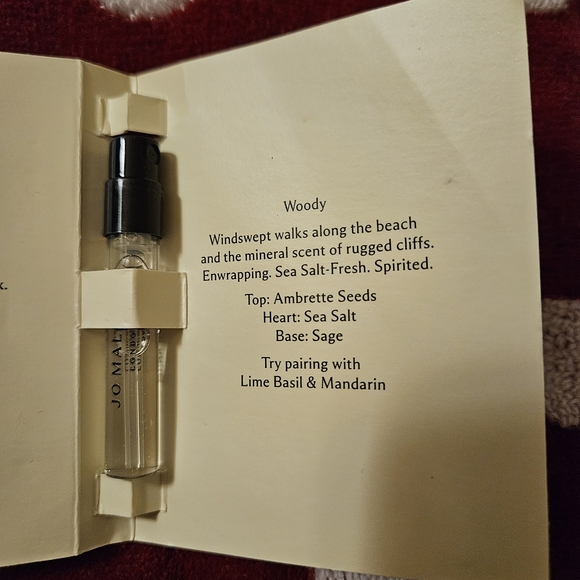 Woody
Windswept walks along the beach
and the mineral scent of rugged cliffs.
Enwrapping. Sea Salt-Fresh. Spirited.
Top: Ambrette Seeds
Heart: Sea Salt
Base: Sage
Try pairing with
Lime Basil & Mandarin
JO MAL
LONDO